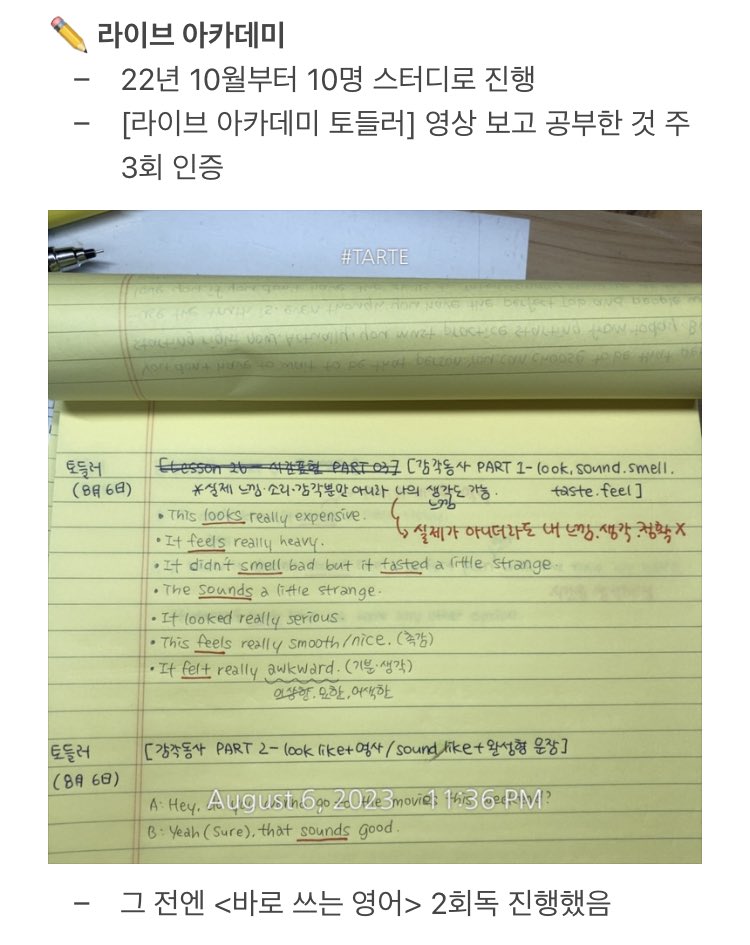 ✏️ 라이브 아카데미
– 22년 10월부터 10명 스터디로 진행
– [라이브 아카데미 토들러] 영상 보고 공부한 것 주
3회 인증
#TARTE
토들러
(8月 6日)
[Lesson 26 - 시간표현 PART 03] [감각동사 PART 1 - look, sound, smell,
taste, feel]
*실제 느낌·소리·감각뿐만 아니라 나의 생각도 가능.
느낌
↳ 실제가 아니더라도 내 느낌, 생각. 정확 X
• This looks really expensive.
• It feels really heavy.
• It didn't smell bad but it tasted a little strange.
• The sounds a little strange.
• It looked really serious.
• This feels really smooth/nice. (촉감)
• It felt really awkward. (기분·생각)
이상한, 묘한, 어색한
토들러
(8月 6日)
[감각동사 PART 2 - look like + 명사 / sound like + 완성형 문장]
A: Hey, go to the movies this weekend?
August 6, 2023 11:36 PM
B: Yeah (Sure), that sounds good.
– 그 전엔 <바로 쓰는 영어> 2회독 진행했음